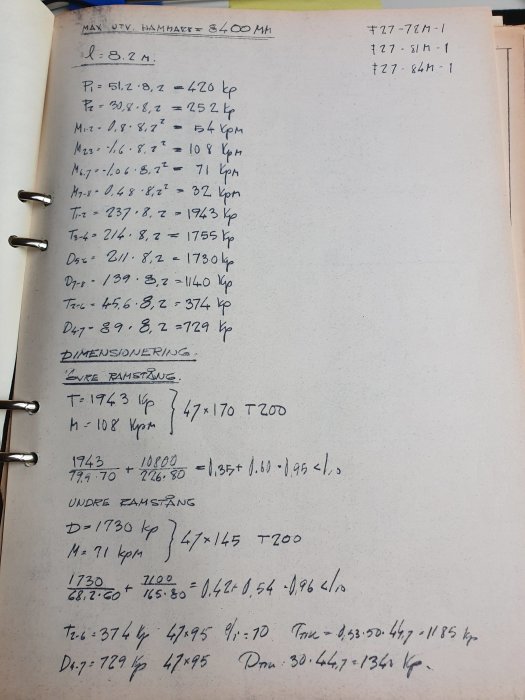 MAX UTV. HAMMARE = 8400 MM
l = 8.2 M.
F27-72M-1
F27-81M-1
F27-84M-1
P1 = 51,2 · 8,2 = 420 kp
P2 = 30,8 · 8,2 = 252 kp
M1-2 = 0,8 · 8,2² = 54 kpm
M2-3 = -1.6 · 8,2² = 108 kpm
M6-7 = -1.06 · 8,2² = 71 kpm
M7-8 = 0,48 · 8,2² = 32 kpm
T1-2 = 237 · 8,2 = 1943 kp
T3-4 = 214 · 8,2 = 1755 kp
D5-6 = 211 · 8,2 = 1730 kp
D7-8 = 139 · 8,2 = 1140 kp
T2-6 = 45,6 · 8,2 = 374 kp
D4-7 = 89 · 8,2 = 729 kp
DIMENSIONERING.
ÖVRE RAMSTÅNG.
T = 1943 kp } 47×170 T200
M = 108 kpm
1943/79.9·70 + 10800/226·80 = 0,35 + 0.60 = 0,95 < 1,0
UNDRE RAMSTÅNG
D = 1730 kp } 47×145 T200
M = 71 kpm
1730/68,2·60 + 7100/165·80 = 0,42 + 0,54 = 0,96 < 1,0
T2-6 = 374 kp 47×95 l/i = 70 Ttill = 0,53·50·44,7 = 1185 kp
D4-7 = 729 kp 47×95 Dtill = 30·44,7 = 1340 kp.